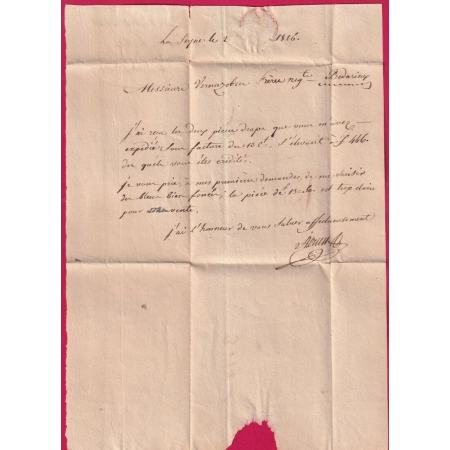 La Seyne le 2 1826.
Messieurs Vernazobre Frères negts Bedarieux
J'ai reçu les deux pièces draps que vous m'avez
expédié. Leur facture du 13 Ct. s'elevant à f 446.
du quel vous êtes crédités.
je vous prie à mes premières demandes, de me choisir
du bleu bien foncé, la pièce de est trop claire
pour vente.
j'ai l'honneur de vous saluer affectueusement